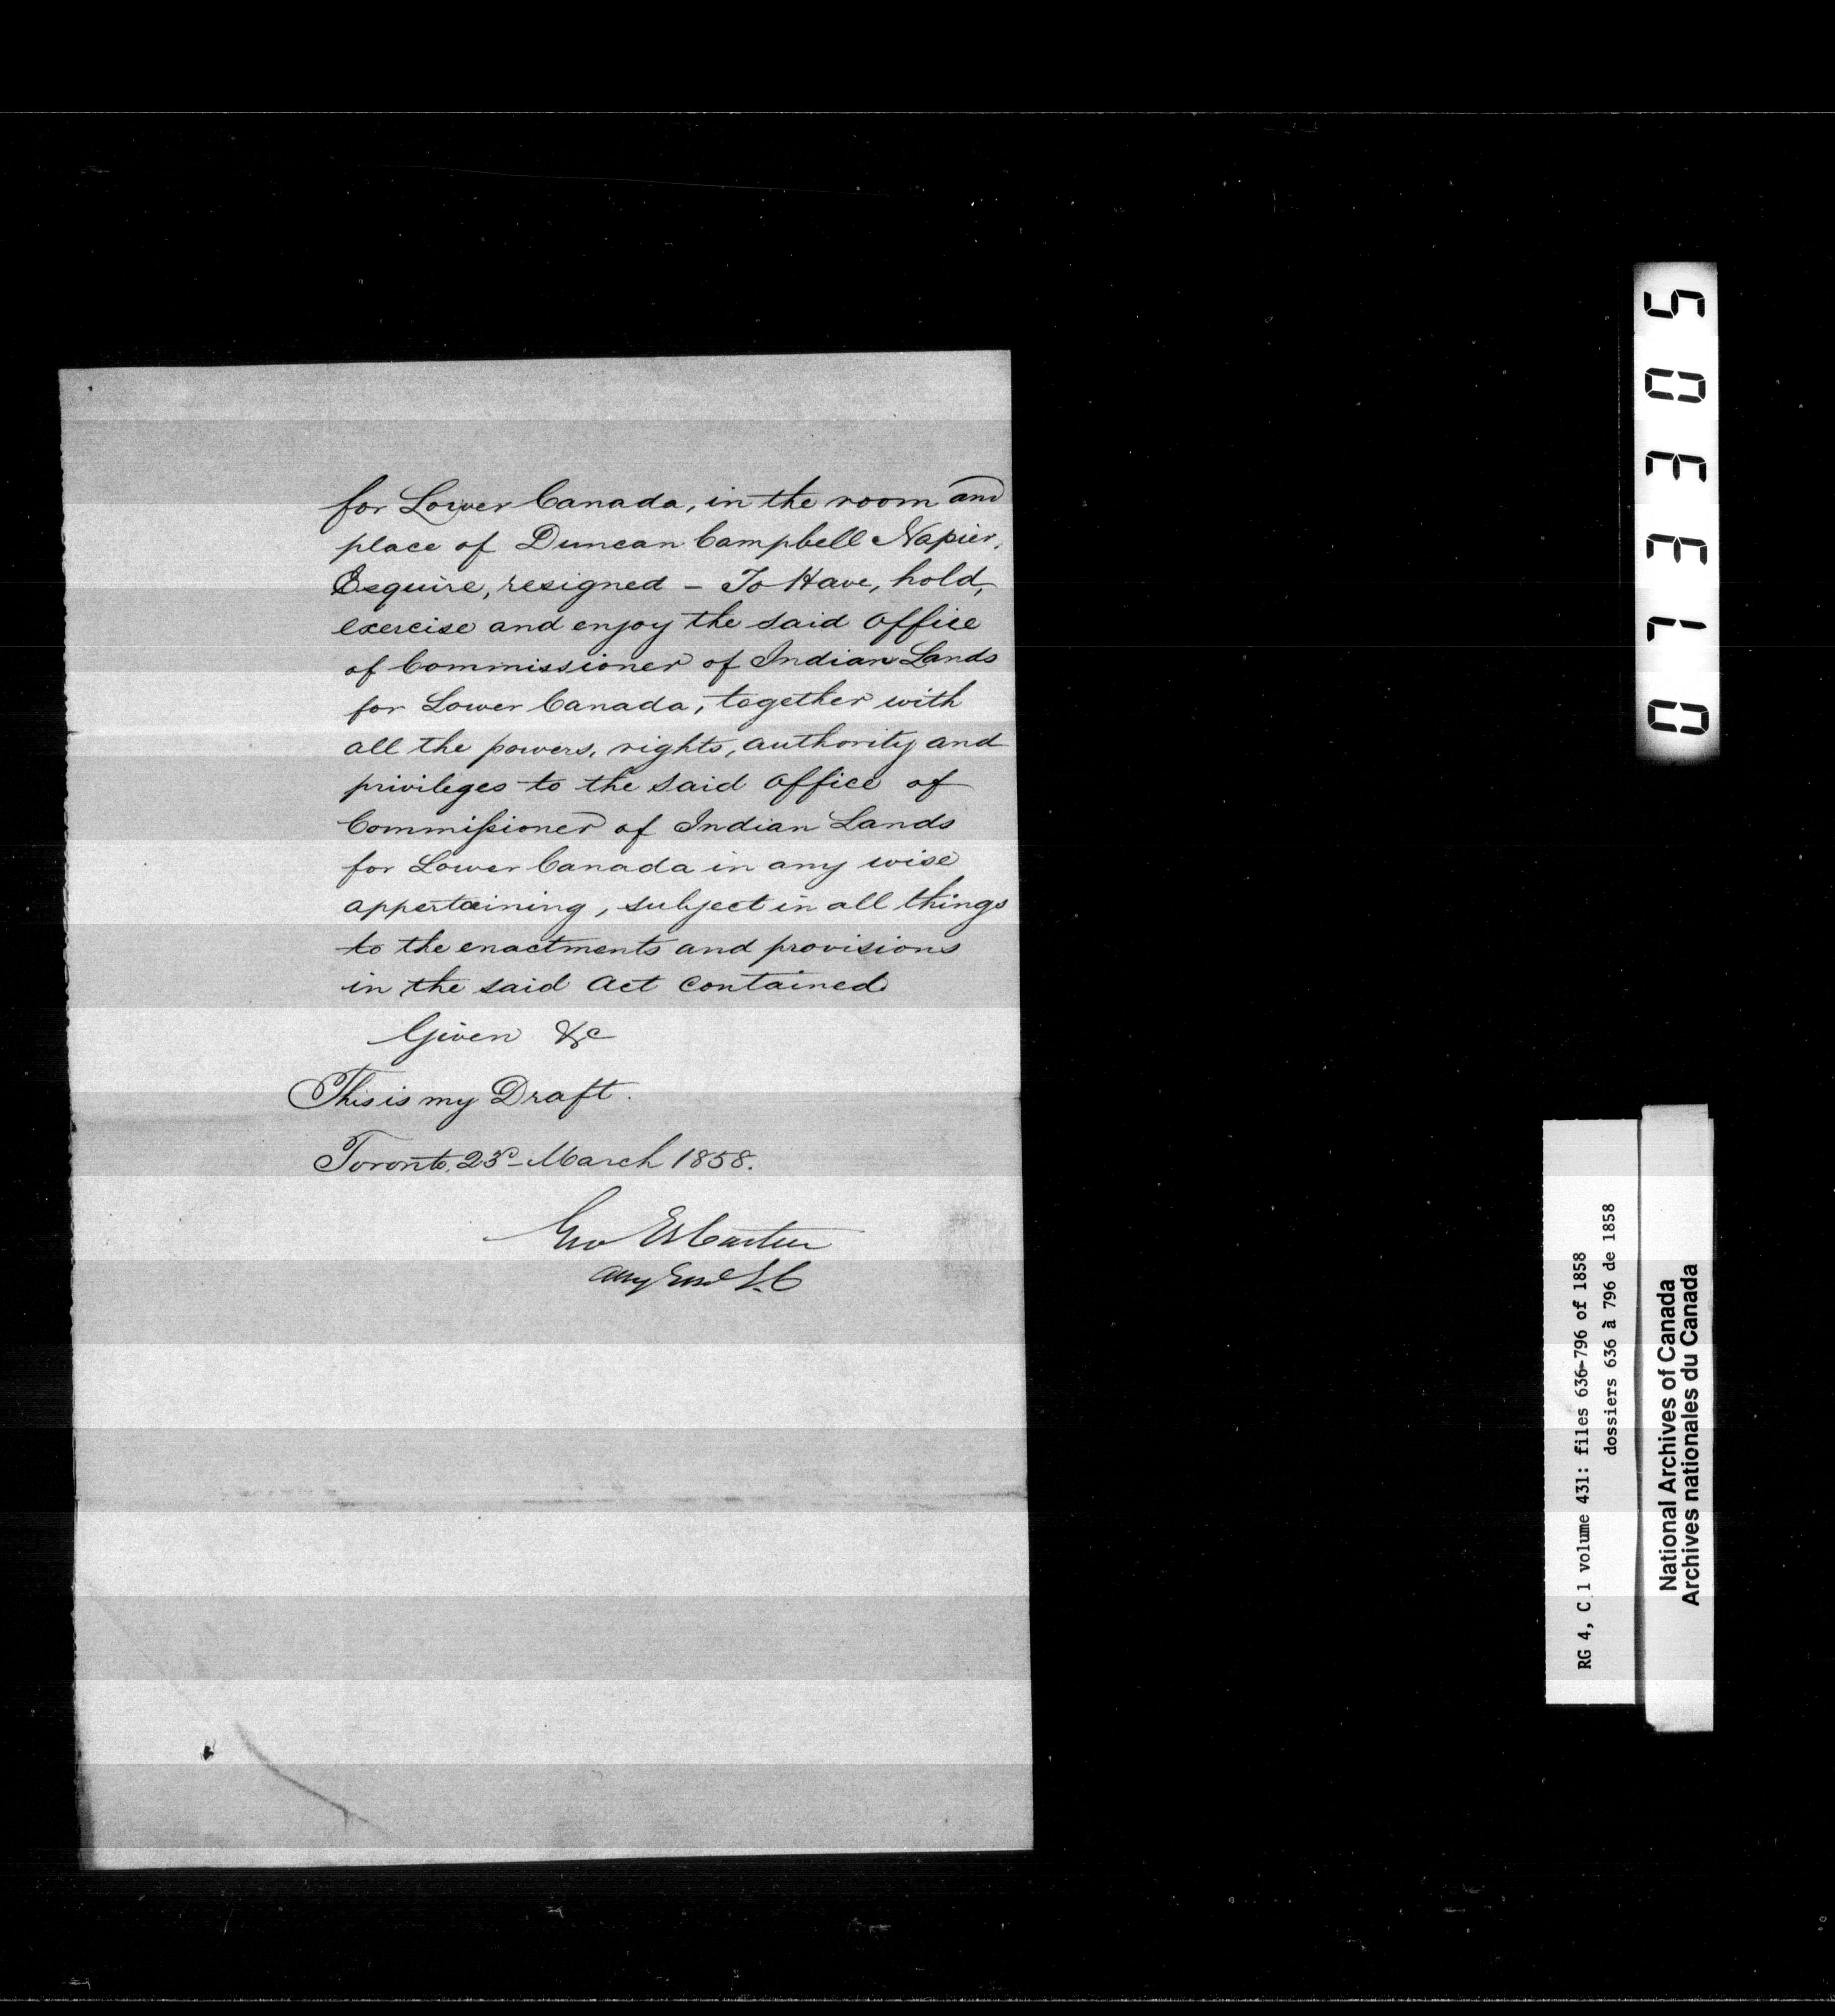 for Lower Canada, in the room and
place of Duncan Campbell Napier,
Esquire, resigned – To Have, hold,
exercise and enjoy the said Office
of Commissioner of Indian Lands
for Lower Canada, together with
all the powers, rights, authority and
privileges to the said Office of
Commissioner of Indian Lands
for Lower Canada in any wise
appertaining, subject in all things
to the enactments and provisions
in the said Act contained
Given &c
This is my Draft.
Toronto, 23d March 1858.
Geo E Cartier
Atty Genl L.C
01335
RG 4, C 1 volume 431: files 636-796 of 1858
dossiers 636 à 796 de 1858
National Archives of Canada
Archives nationales du Canada